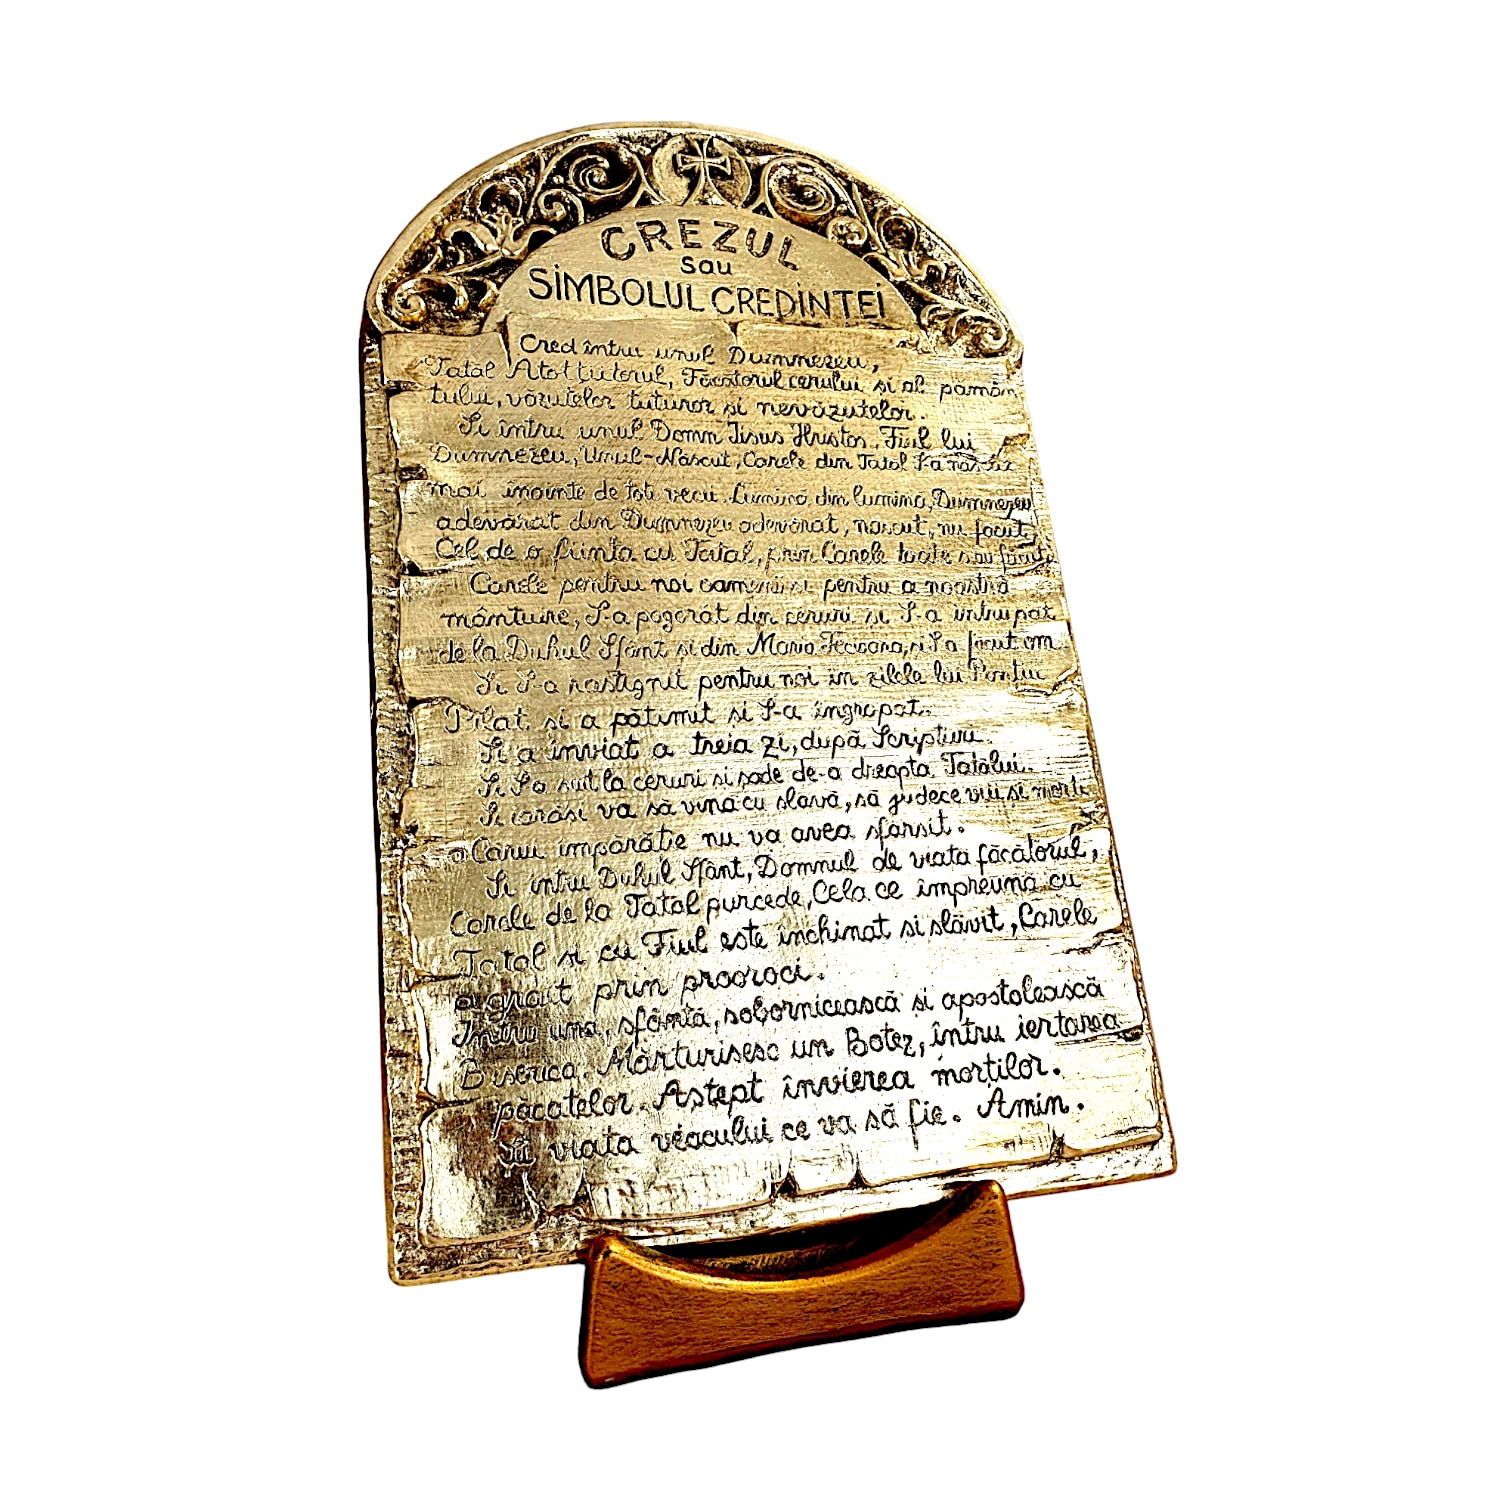 CREZUL
sau
SIMBOLUL CREDINTEI
Cred întru unul Dumnezeu,
Tatal Atotțiitorul, Făcatorul cerului si al pamân
tului, văzutelor tuturor si nevăzutelor.
Si întru unul Domn Iisus Hristos, Fiul lui
Dumnezeu, Unul-Născut, Carele din Tatal S-a născut
mai inainte de toti vecii. Lumină din lumină, Dumnezeu
adevărat din Dumnezeu adevărat, născut, nu făcut,
Cel de o fiinta cu Tatal, prin Carele toate s-au făcut.
Carele pentru noi oamenii si pentru a noastră
mântuire, S-a pogorât din ceruri si S-a intrupat
de la Duhul Sfânt si din Maria Fecioara, si S-a făcut om.
Si S-a răstignit pentru noi în zilele lui Ponțiu
Pilat, si a pătimit si S-a îngropat.
Si a înviat a treia zi, după Scripturi.
Si S-a suit la ceruri si șade de-a dreapta Tatălui.
Si iarăsi va să vină cu slavă, să judece viii si mortii
a Carui împărătie nu va avea sfârsit.
Si intru Duhul Sfânt, Domnul de viata făcătorul,
Carele de la Tatal purcede, Cela ce împreună cu
Tatal si cu Fiul este închinat si slăvit, Carele
a grait prin prooroci.
Intru una, sfântă, sobornicească si apostolească
Biserica. Mărturisesc un Botez, întru iertarea
păcatelor. Astept învierea morților.
Si viata veacului ce va să fie. Amin.